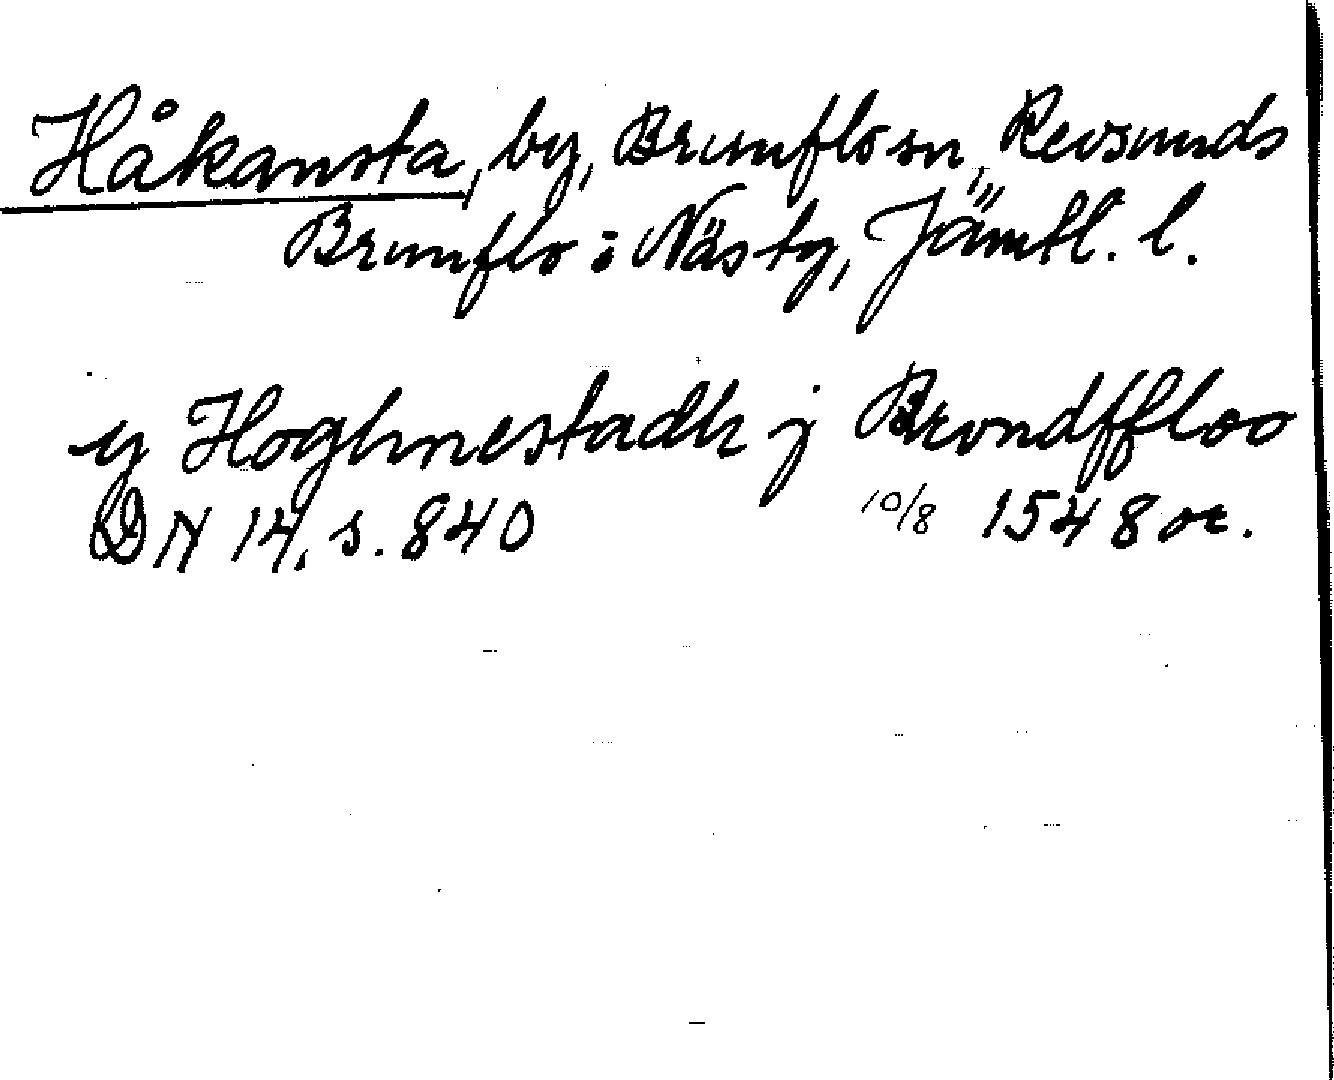 Håkansta, by, Brunflo sn, Revsunds
Brunflo o Näs tg, Jämtl. l.
y Hoghnestadh j Brondffloo
DN 14, s. 840 10/8 1548 or.